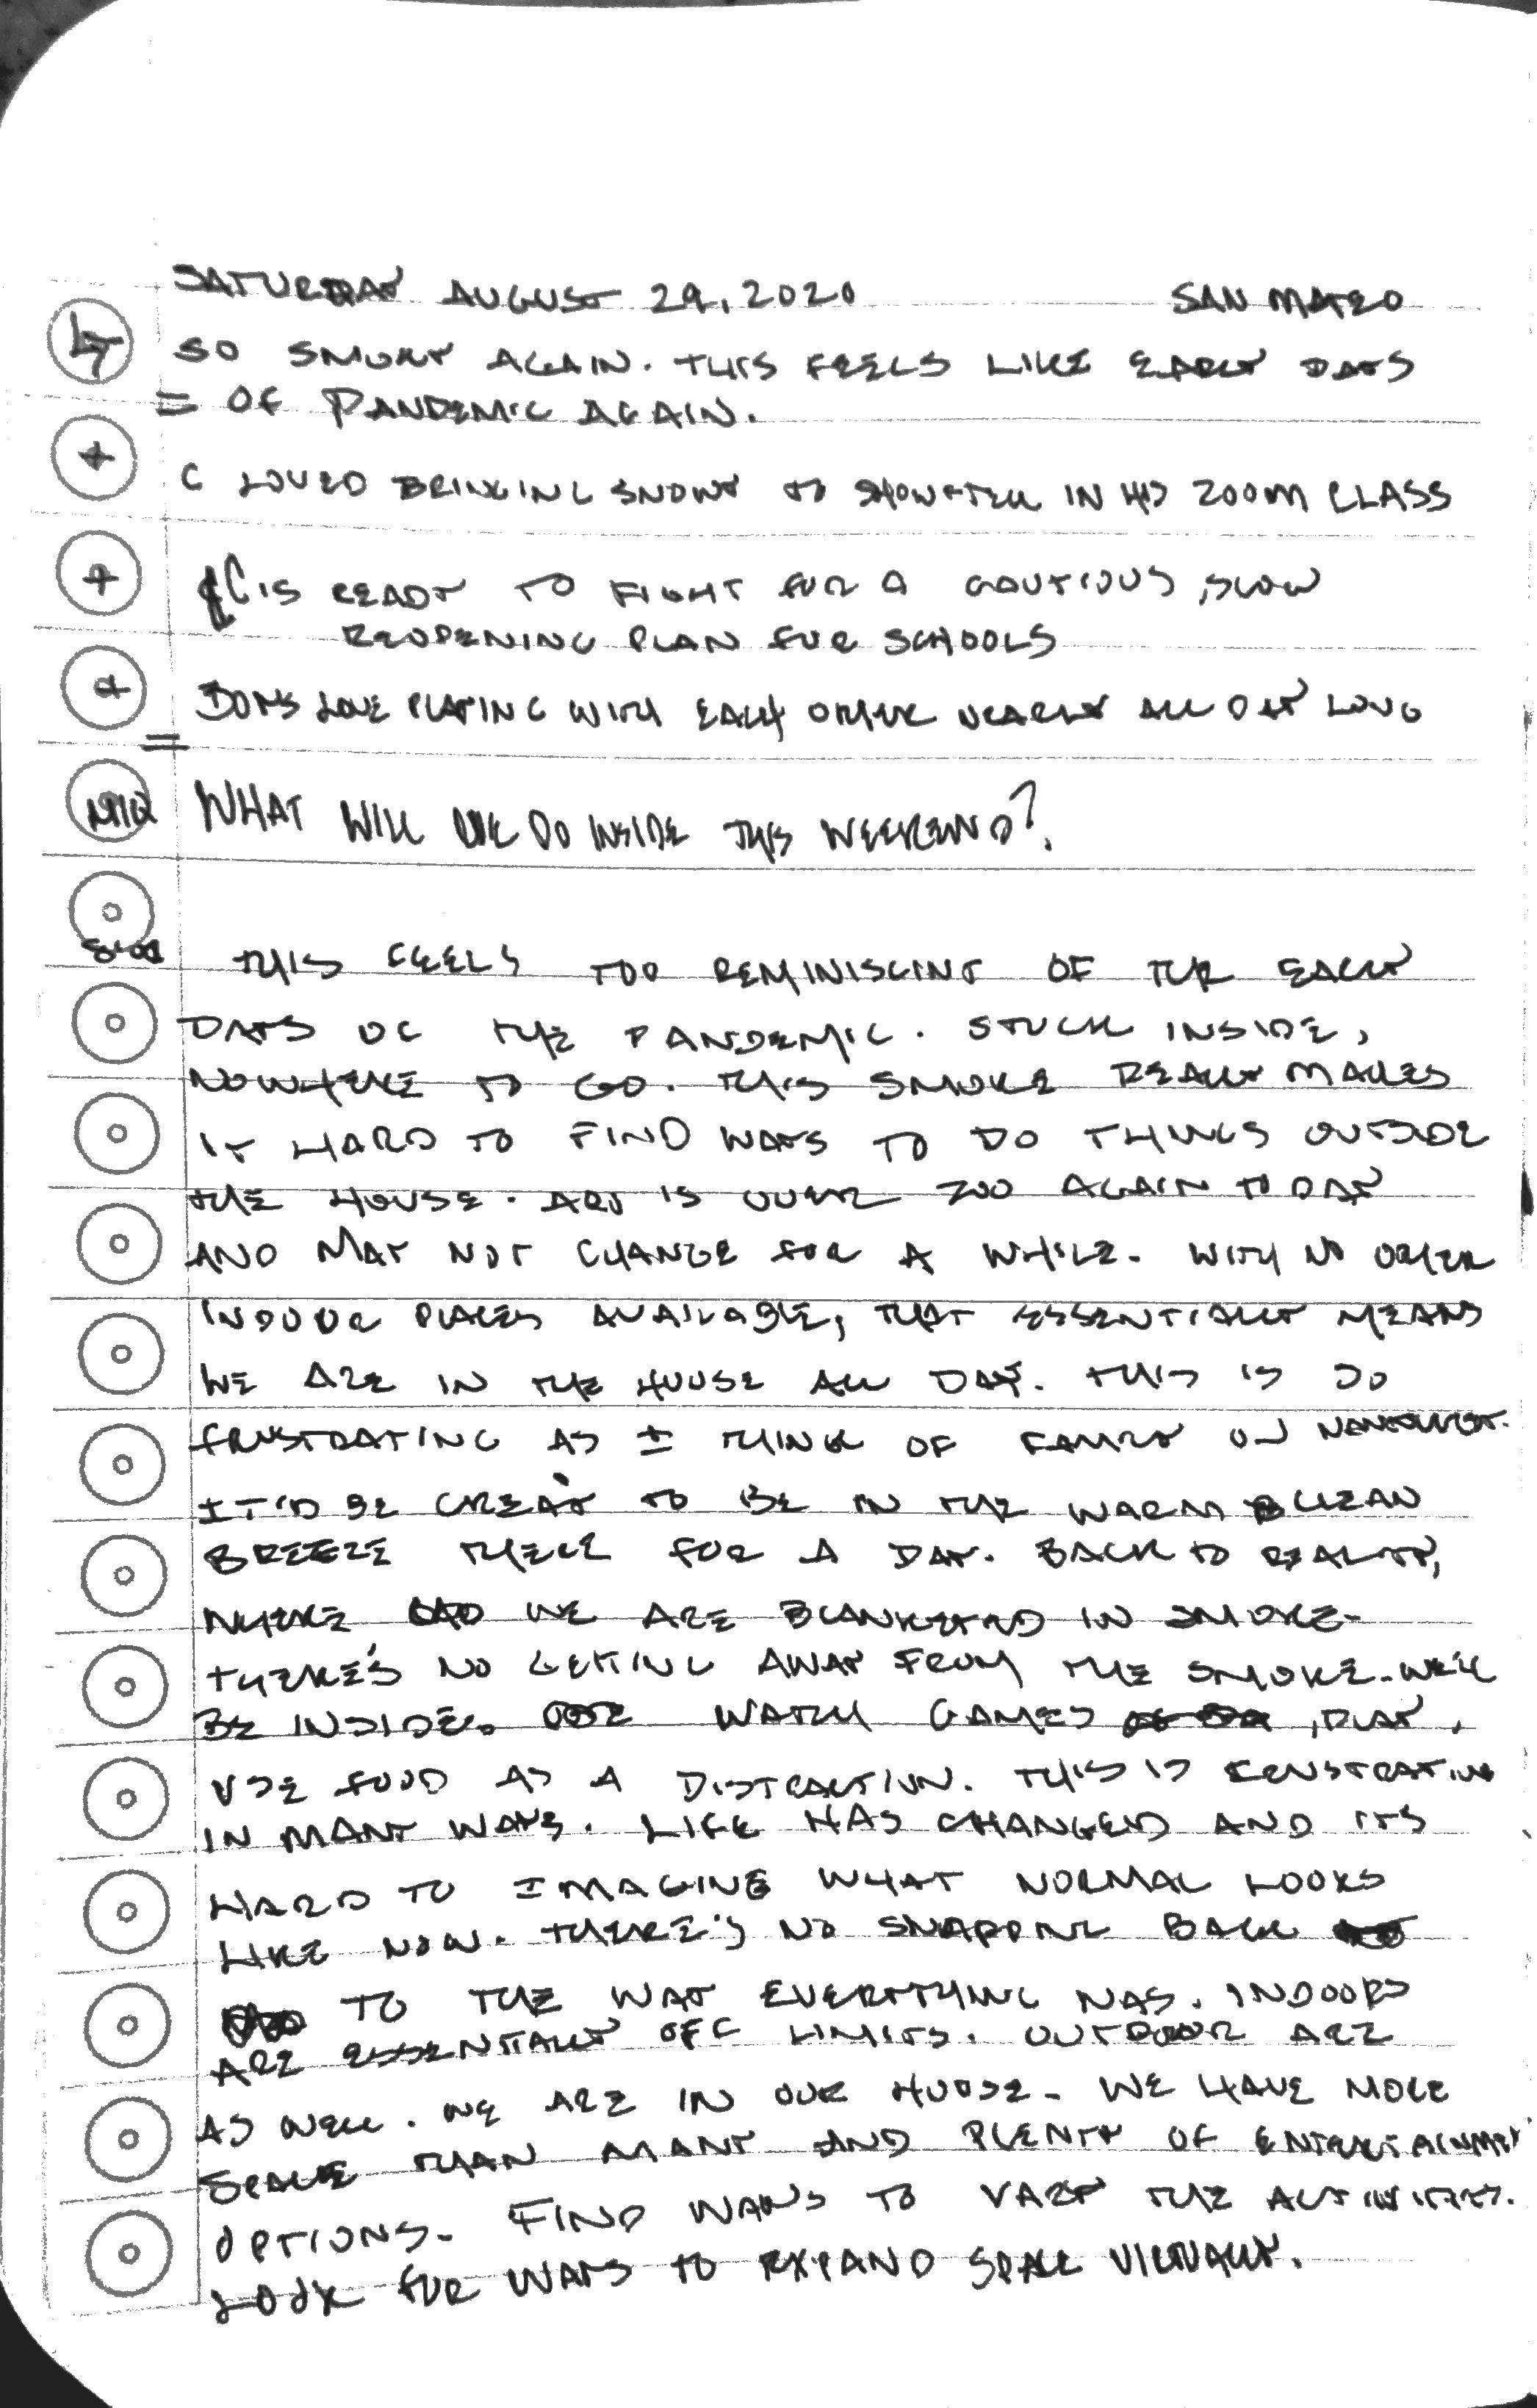 SATURDAY AUGUST 29, 2020 SAN MATEO
SO SMOKY AGAIN. THIS FEELS LIKE EARLY DAYS
= OF PANDEMIC AGAIN.
+ C LOVED BRINGING SNOWY TO SHOW+TELL IN HIS ZOOM CLASS
+ C IS READY TO FIGHT FOR A CAUTIOUS, SLOW
REOPENING PLAN FOR SCHOOLS
+ BOYS LOVE PLAYING WITH EACH OTHER NEARLY ALL DAY LONG
=
WHAT WILL WE DO INSIDE THIS WEEKEND?
THIS FEELS TOO REMINISCINT OF THE EARLY
DAYS OF THE PANDEMIC. STUCK INSIDE,
NOWHERE TO GO. THIS SMOKE REALLY MAKES
IT HARD TO FIND WAYS TO DO THINGS OUTSIDE
THE HOUSE. AQI IS OVER 200 AGAIN TODAY
AND MAY NOT CHANGE FOR A WHILE. WITH NO OTHER
INDOOR PLACES AVAILABLE, THAT ESSENTIALLY MEANS
WE ARE IN THE HOUSE ALL DAY. THIS IS SO
FRUSTRATING AS I THINK OF FAMILY ON NANTUCKET.
IT'D BE GREAT TO BE IN THE WARM CLEAN
BREEZE THERE FOR A DAY. BACK TO REALITY,
WHERE WE ARE BLANKETED IN SMOKE.
THERE'S NO GETTING AWAY FROM THE SMOKE. WE'LL
BE INSIDE. WATCH GAMES, PLAY,
USE FOOD AS A DISTRACTION. THIS IS FRUSTRATING
IN MANY WAYS. LIFE HAS CHANGED AND ITS
HARD TO IMAGINE WHAT NORMAL LOOKS
LIKE NOW. THERE'S NO SNAPPING BACK
TO THE WAY EVERYTHING WAS. INDOORS
ARE ESSENTIALLY OFF LIMITS. OUTDOOR ARE
AS WELL. WE ARE IN OUR HOUSE. WE HAVE MORE
SPACE THAN MANY AND PLENTY OF ENTERTAINMENT
OPTIONS. FIND WAYS TO VARY THE ACTIVITIES.
LOOK FOR WAYS TO EXPAND SPACE VIRTUALLY.